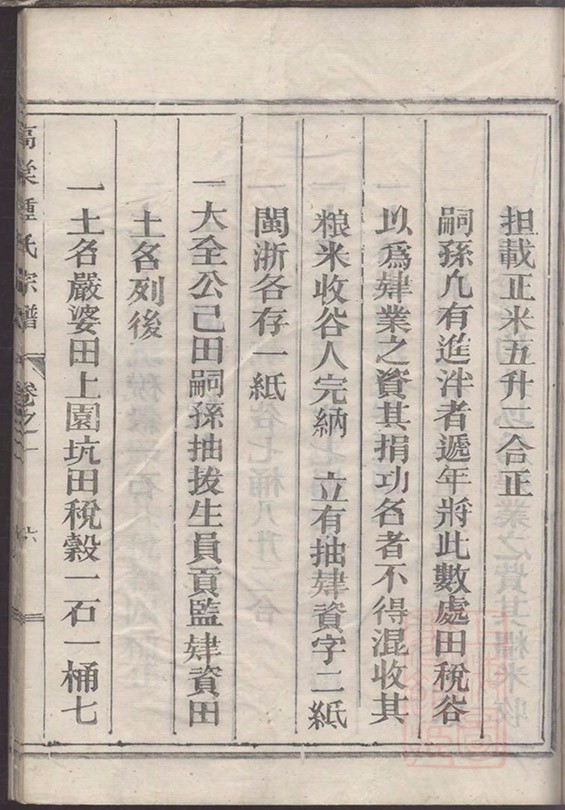 担載正米五升二合正
嗣孫凢有進泮者遞年將此數處田稅谷
以爲肄業之資其捐功名者不得混收其
粮米收谷人完納　立有抽肄資字二紙
閩浙各存一紙
一大全公己田嗣孫抽拔生員貢監肄資田
土名列後
一土名嚴婆田上園坑田稅穀一石一桶七
鍾氏宗譜
卷之一